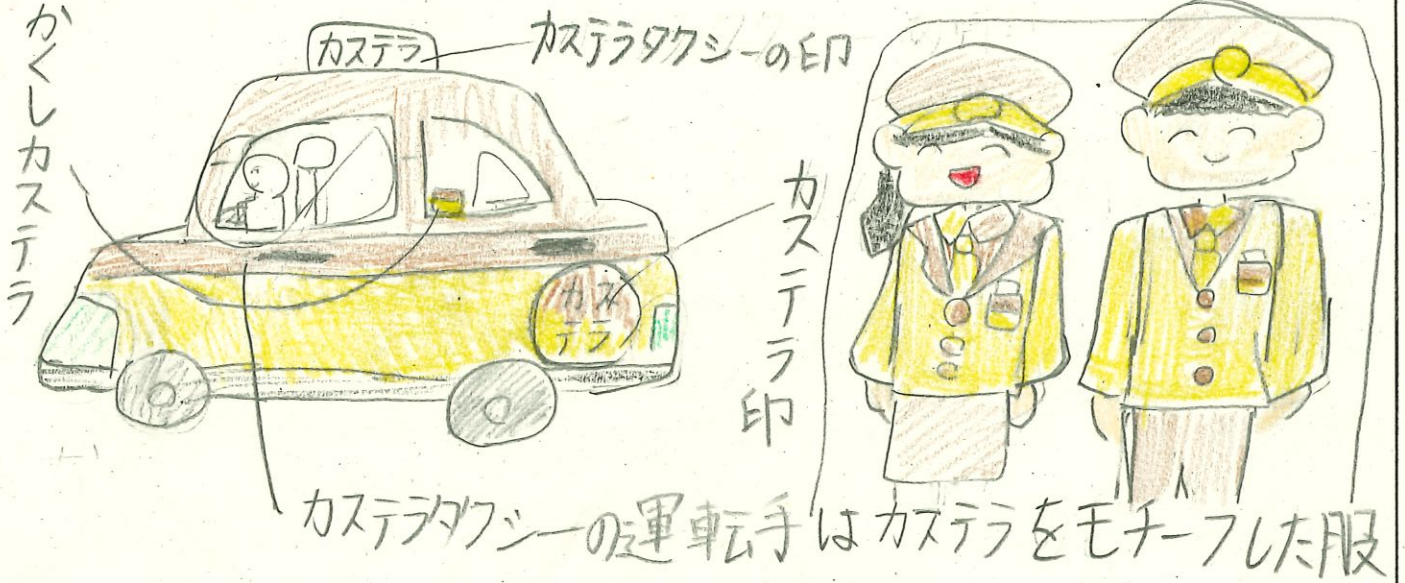 かくしカステラ
カステラ
カステラタクシーの印
カス
テラ
カステラ印
カステラタクシーの運転手はカステラをモチーフした服